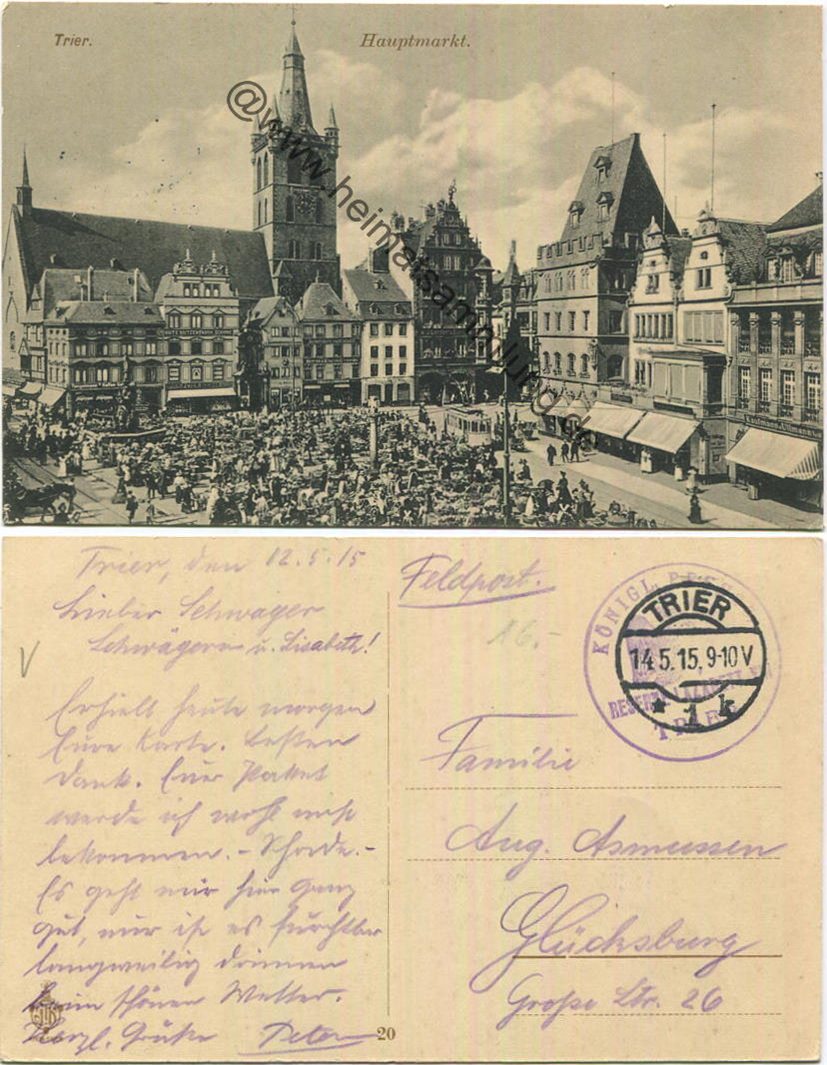 Trier.
Hauptmarkt.
@www.heimatsammlung.de
Kaufmann & Ullmann
Trier, den 12.5.15
Lieber Schwager
Schwägerin u. Lisabeth!
Erhielt heute morgen
Eure Karte. Besten
Dank. Euer Paket
werde ich wohl nicht
bekommen. – Schade. –
Es geht mir hier ganz
gut, nur ist es furchtbar
langweilig drinnen
beim schönen Wetter.
Herzl. Grüße Peter
20
Feldpost.
16.-
KÖNIGL.
RESERVE LAZARETT
TRIER
TRIER
14.5.15. 9-10 V
* 1 k
Familie
Aug. Asmussen
Glücksburg
Große Str. 26